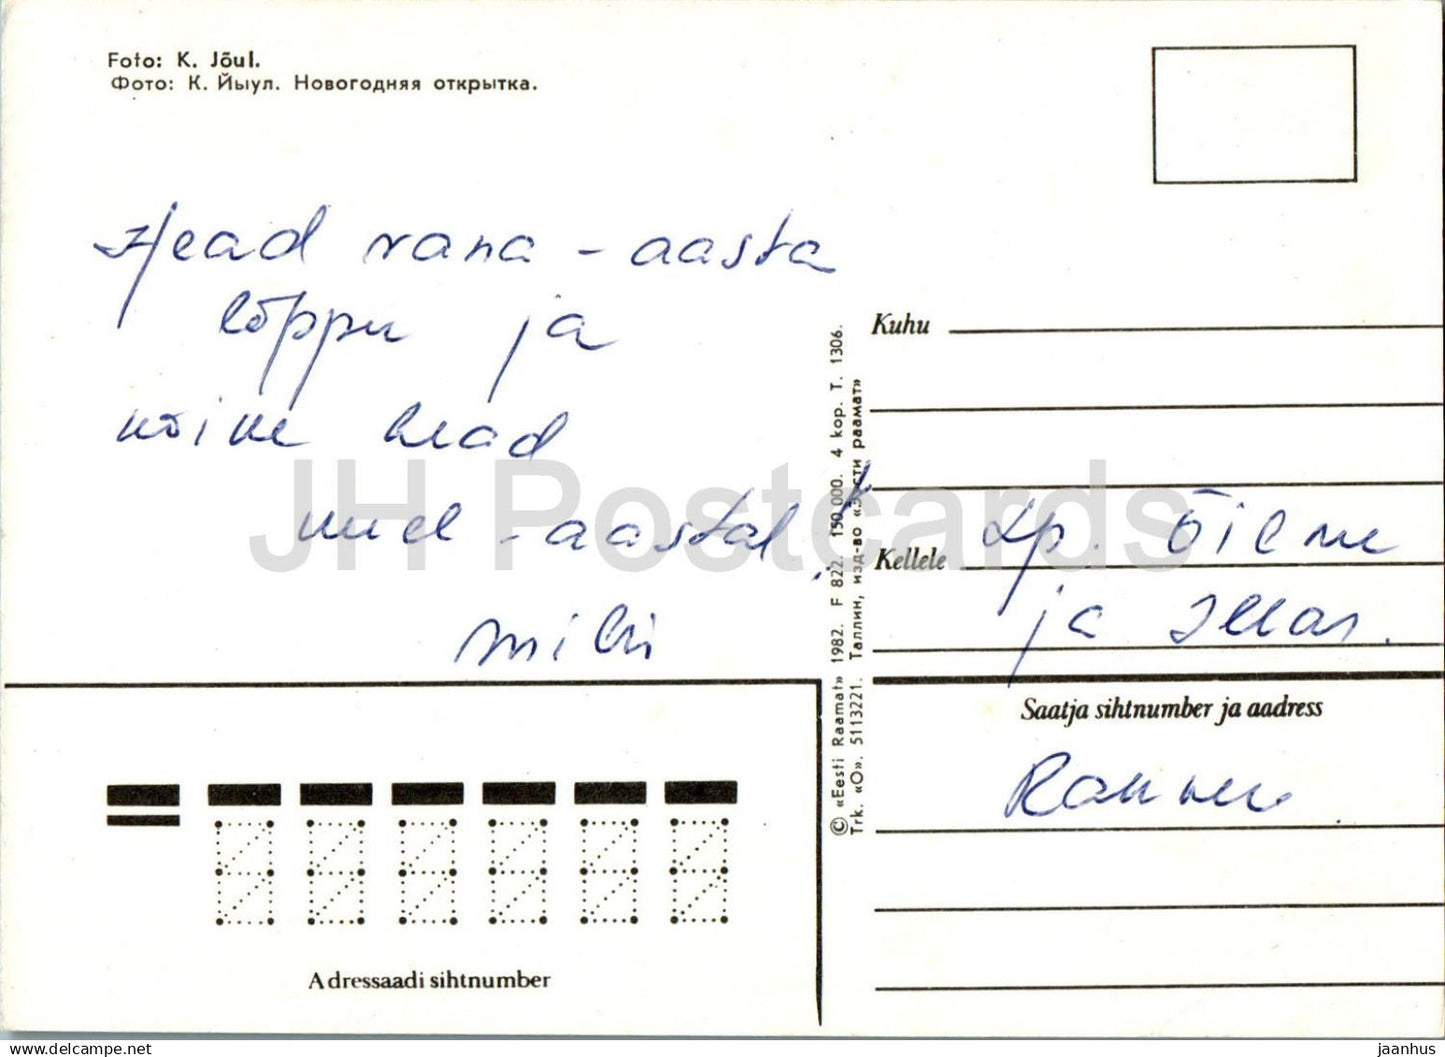 Foto: K. Jõul.
Фото: К. Йыул. Новогодняя открытка.
Head vana-aasta
lõppu ja
kõike head
uuel-aastal!
Kuhu
Kellele
Lp. Õilme
ja Illar.
Saatja sihtnumber ja aadress
Adressaadi sihtnumber
© «Eesti Raamat» 1982. F 822. 150 000. 4 kop. T. 1306.
Trk. «O». 5113221. Таллин, изд-во «Ээсти раамат»
JH Postcards
www.hippostcard.com
jaanhus